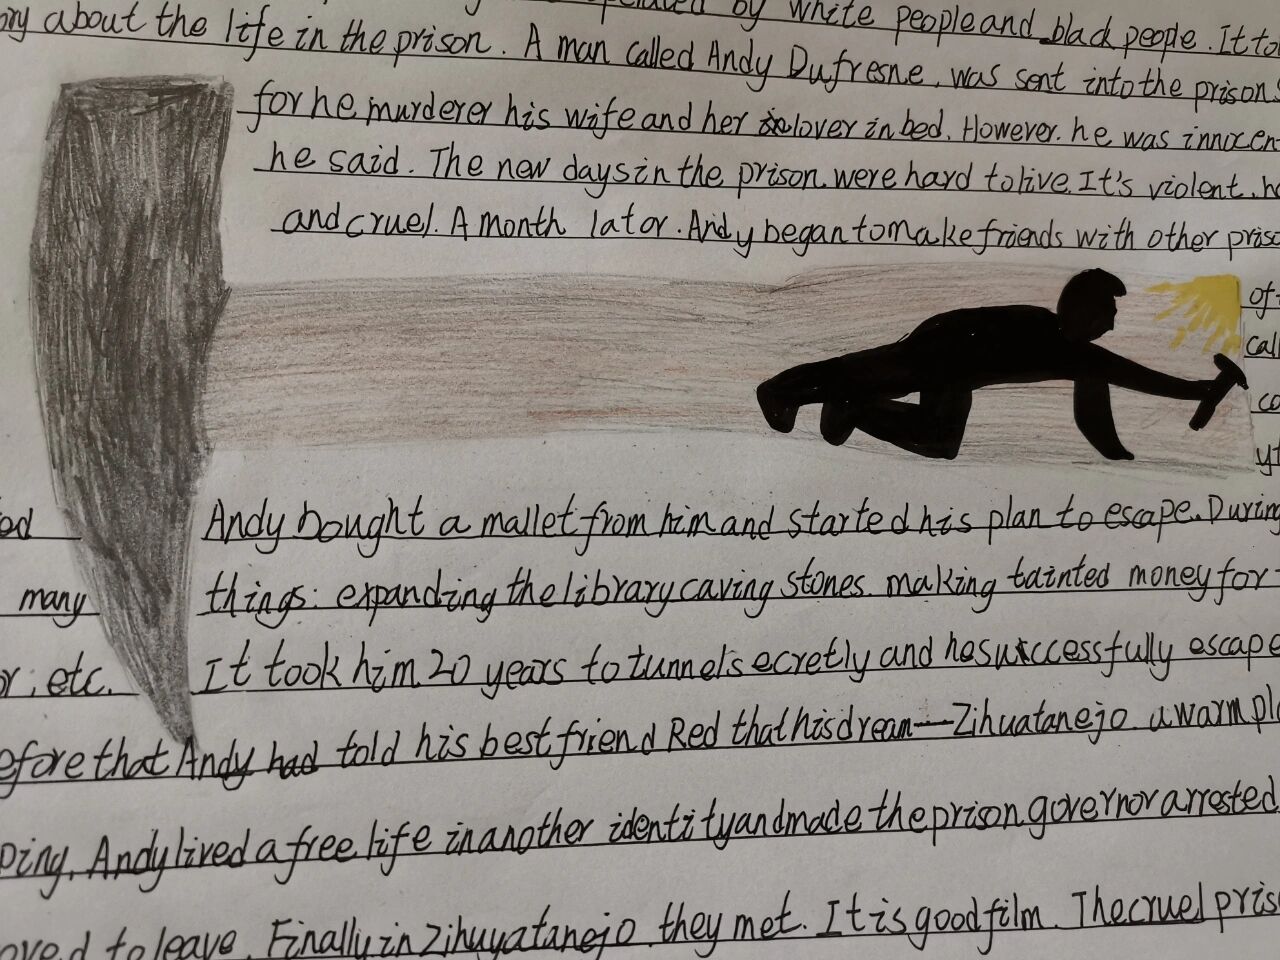 by white people and black people. It to
ory about the life in the prison. A man called Andy Dufresne, was sent into the prison
for he murderer his wife and her lover in bed. However. he was innocen
he said. The new days in the prison. were hard to live. It's violent. h
and cruel. A month lator. Andy began to make friends with other priso
of
call
co
yt
ed Andy bought a mallet from him and started his plan to escape. During
many things: expanding the library caving stones. making tainted money for
or, etc. It took him 20 years to tunnel secretly and he successfully escape
efore that Andy had told his best friend Red that his dream—Zihuatanejo. a warm pl
ping. Andy lived a free life in another identity and made the prison governor arrested.
oved to leave. Finally in Zihuyatanejo. they met. It is good film. The cruel pris